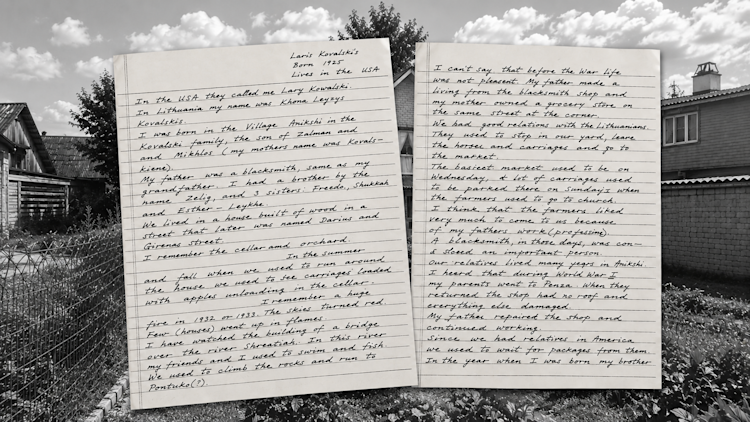 Laris Kovalskis
Born 1925
Lives in the USA
In the USA they called me Lary Kowalski.
In Lithuania my name was Khona Leyzys
Kovalskis.
I was born in the Village Anikshi in the
Kovalski family, the son of Zalman and
and Mikhlos (my mothers name was Kovals-
kiene).
My father was a blacksmith, same as my
grandfather. I had a brother by the
name Zelig, and 3 sisters: Freeda, Shukkah
and Esther - Leykhe.
We lived in a house built of wood in a
street that later was named Darius and
Girenas street.
I remember the cellar and orchard
In the summer
and fall when we used to run around
the house we used to see carriages loaded
with apples unloading in the cellar.
I remember a huge
fire in 1932 or 1933. The skies turned red
Few (houses) went up in flames.
I have watched the building of a bridge
over the river Shreatiah. In this river
my friends and I used to swim and fish
We used to climb the rocks and run to
Pontuko(?)
I can't say that before the War Life
was not pleasent. My father made a
living from the blacksmith shop and
my mother owned a grocery store on
the same street at the corner.
We had good relations with the Lithuanians.
They used to stop in our yard, leave
the horses and carriages and go to
the market.
The basiect market used to be on
Wednesday, a lot of carriages used
to be parked there on Sundays when
the farmers used to go to church.
I think that the farmers liked
very much to come to us because
of my fathers work (profession).
A blacksmith, in those days, was con-
sidered an important person
Our relatives lived many years in Anikshi.
I heard that during World War I
my parents went to Penza. When they
returned the shop had no roof and
everything else damaged.
My father repaired the shop and
continued working
Since we had relatives in America
we used to wait for packages from them.
In the year when I was born my brother